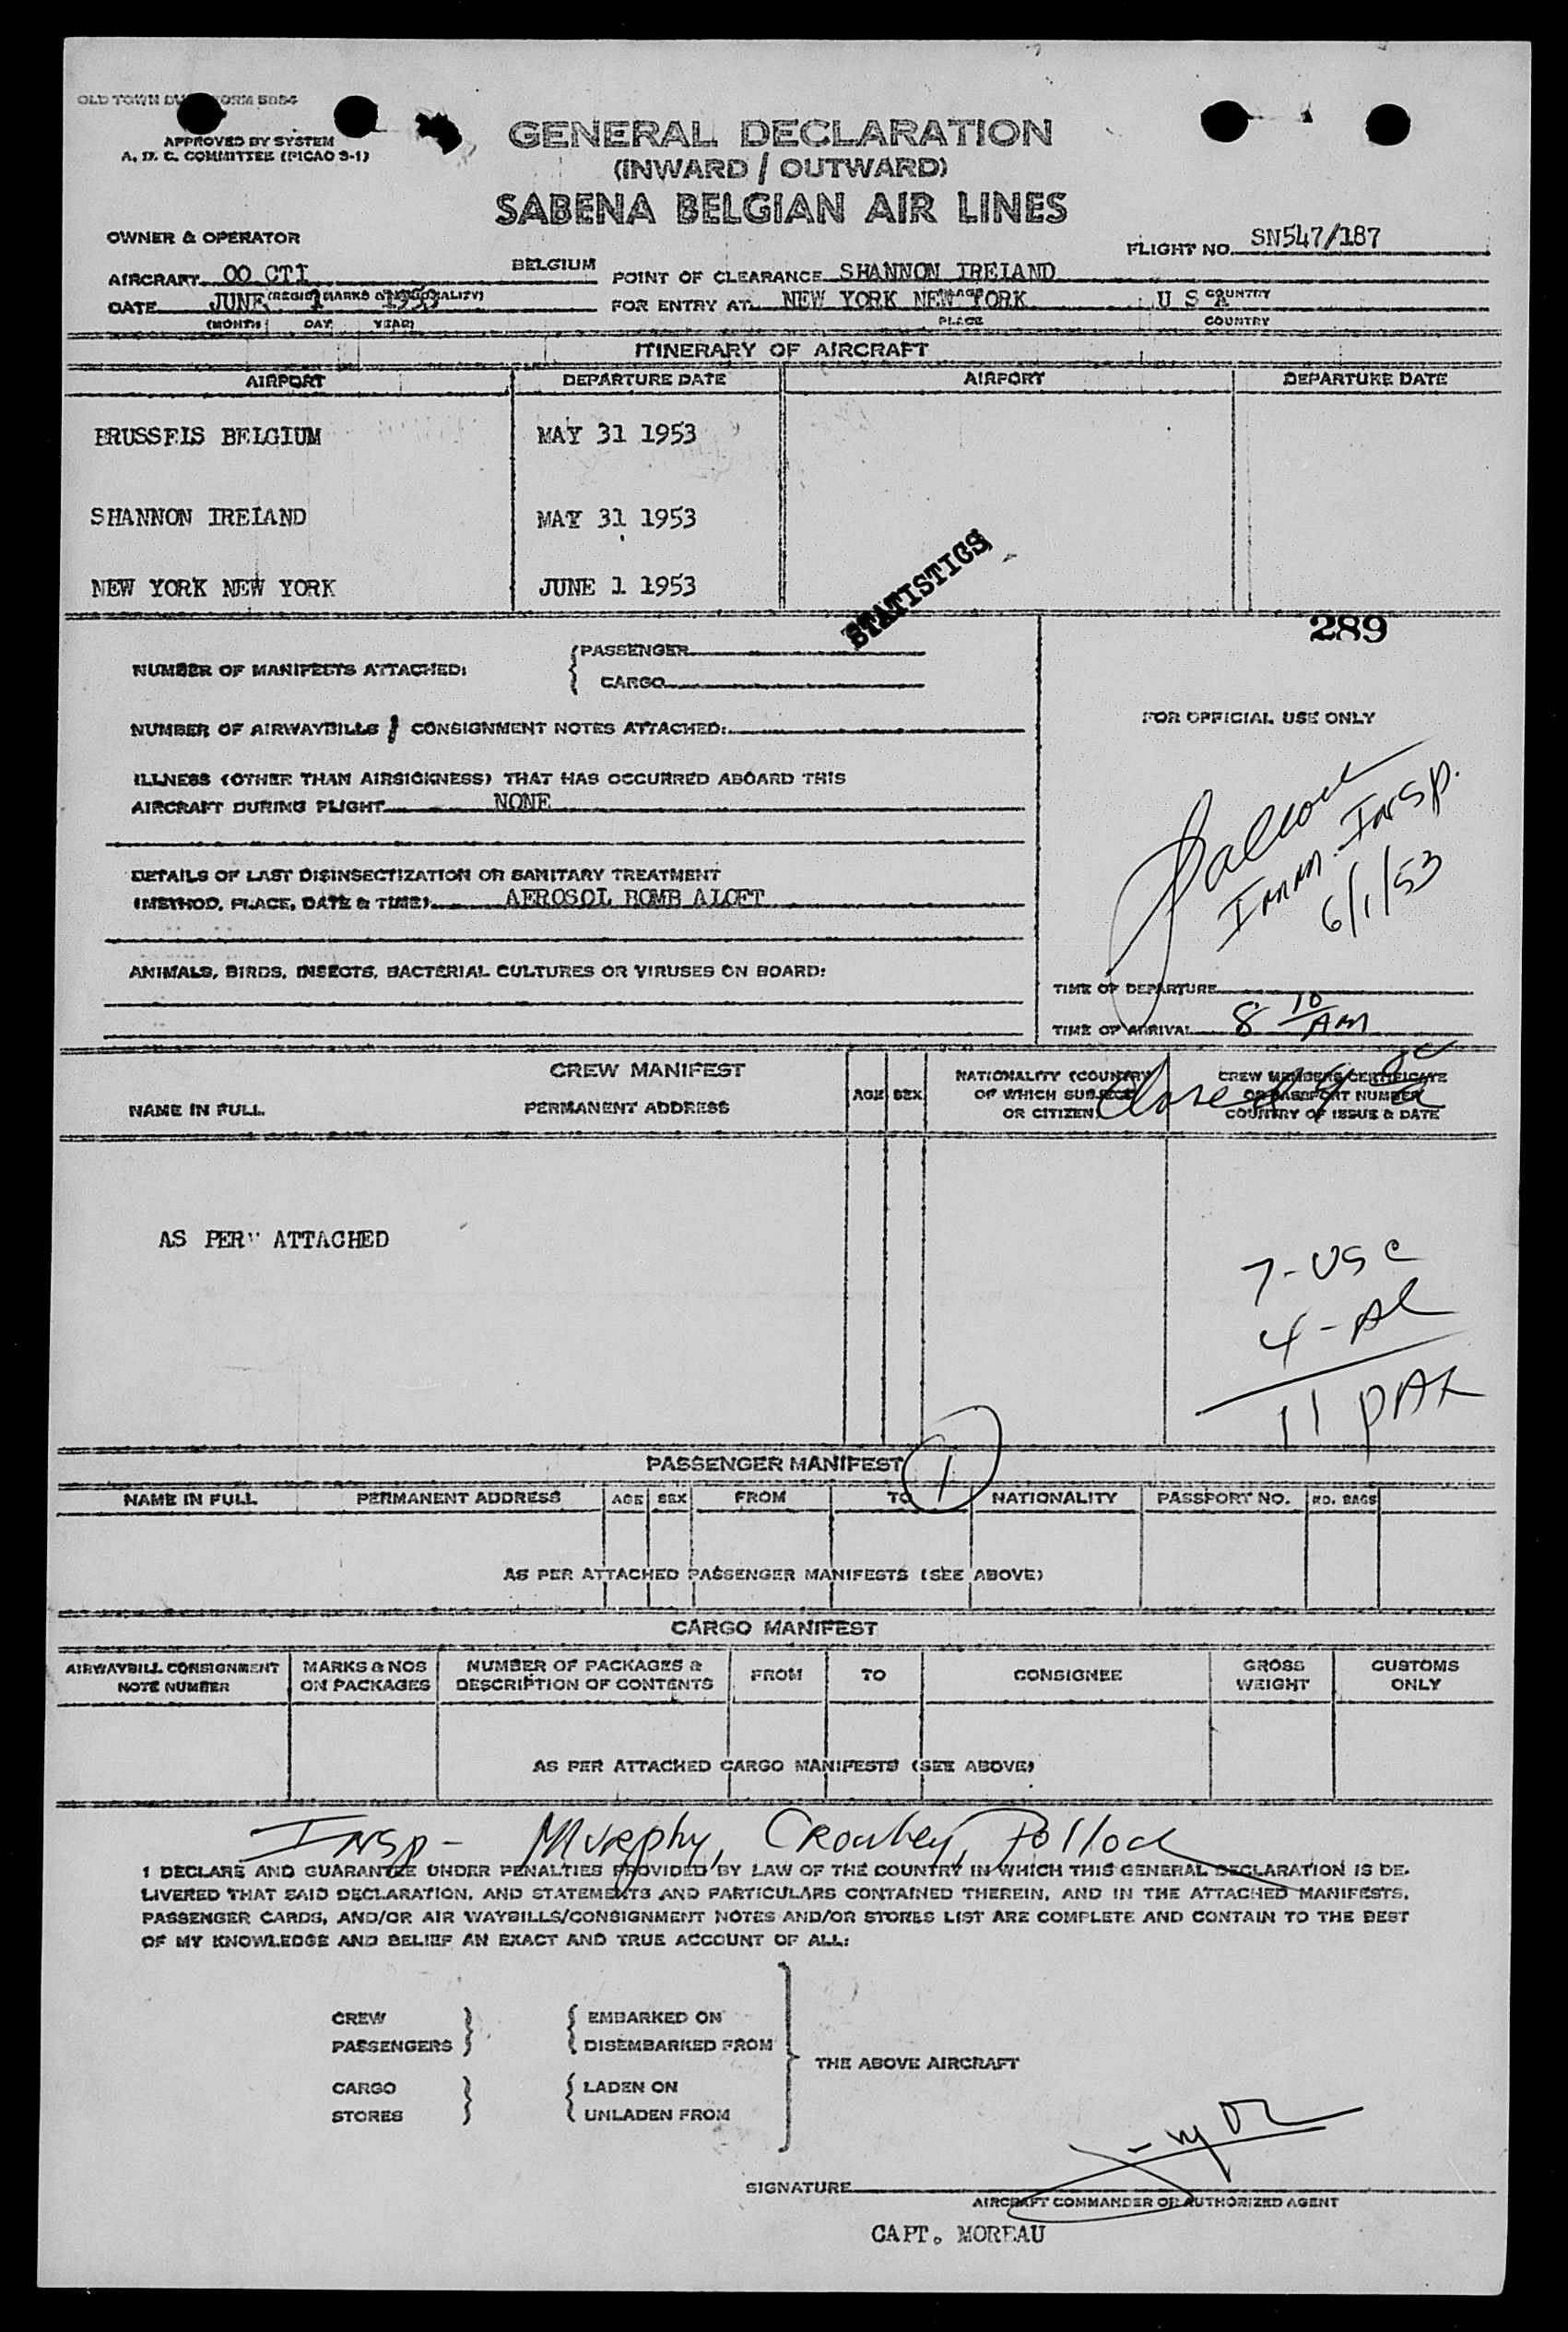 OLD TOWN FORM 5054
APPROVED BY SYSTEM
A. D. C. COMMITTEE (PICAO S-1)
GENERAL DECLARATION
(INWARD / OUTWARD)
SABENA BELGIAN AIR LINES
OWNER & OPERATOR
FLIGHT NO. SN547/187
AIRCRAFT OO CTI BELGIUM POINT OF CLEARANCE SHANNON IREIAND
(REGIS. MARKS & NATIONALITY)
DATE JUNE 1 1953 FOR ENTRY AT NEW YORK NEW YORK U S A COUNTRY
(MONTH DAY YEAR) PLACE COUNTRY
ITINERARY OF AIRCRAFT
AIRPORT DEPARTURE DATE AIRPORT DEPARTURE DATE
BRUSSEIS BELGIUM MAY 31 1953
SHANNON IREIAND MAY 31 1953
NEW YORK NEW YORK JUNE 1 1953
STATISTICS
289
NUMBER OF MANIFESTS ATTACHED:
PASSENGER
CARGO
NUMBER OF AIRWAYBILLS / CONSIGNMENT NOTES ATTACHED:
FOR OFFICIAL USE ONLY
ILLNESS (OTHER THAN AIRSICKNESS) THAT HAS OCCURRED ABOARD THIS
AIRCRAFT DURING FLIGHT NONE
Imm. Insp.
6/1/53
DETAILS OF LAST DISINSECTIZATION OR SANITARY TREATMENT
(METHOD, PLACE, DATE & TIME) AEROSOL BOMB ALOFT
ANIMALS, BIRDS, INSECTS, BACTERIAL CULTURES OR VIRUSES ON BOARD:
TIME OF DEPARTURE
TIME OF ARRIVAL 8 10 AM
CREW MANIFEST
NAME IN FULL PERMANENT ADDRESS AGE SEX
NATIONALITY (COUNTRY
OF WHICH SUBJECT
OR CITIZEN)
CREW MEMBERS CERTIFICATE
OR PASSPORT NUMBER
COUNTRY OF ISSUE & DATE
AS PER ATTACHED
7-USC
4-Al
11 PAX
PASSENGER MANIFEST 1
NAME IN FULL PERMANENT ADDRESS AGE SEX FROM TO NATIONALITY PASSPORT NO. NO. BAGS
AS PER ATTACHED PASSENGER MANIFESTS (SEE ABOVE)
CARGO MANIFEST
AIRWAYBILL CONSIGNMENT NOTE NUMBER
MARKS & NOS ON PACKAGES
NUMBER OF PACKAGES & DESCRIPTION OF CONTENTS
FROM TO CONSIGNEE
GROSS WEIGHT
CUSTOMS ONLY
AS PER ATTACHED CARGO MANIFESTS (SEE ABOVE)
Insp- Murphy, Crowley, Pollock
I DECLARE AND GUARANTEE UNDER PENALTIES PROVIDED BY LAW OF THE COUNTRY IN WHICH THIS GENERAL DECLARATION IS DE-
LIVERED THAT SAID DECLARATION, AND STATEMENTS AND PARTICULARS CONTAINED THEREIN, AND IN THE ATTACHED MANIFESTS,
PASSENGER CARDS, AND/OR AIR WAYBILLS/CONSIGNMENT NOTES AND/OR STORES LIST ARE COMPLETE AND CONTAIN TO THE BEST
OF MY KNOWLEDGE AND BELIEF AN EXACT AND TRUE ACCOUNT OF ALL:
CREW EMBARKED ON
PASSENGERS DISEMBARKED FROM
THE ABOVE AIRCRAFT
CARGO LADEN ON
STORES UNLADEN FROM
SIGNATURE
AIRCRAFT COMMANDER OR AUTHORIZED AGENT
CAPT. MOREAU